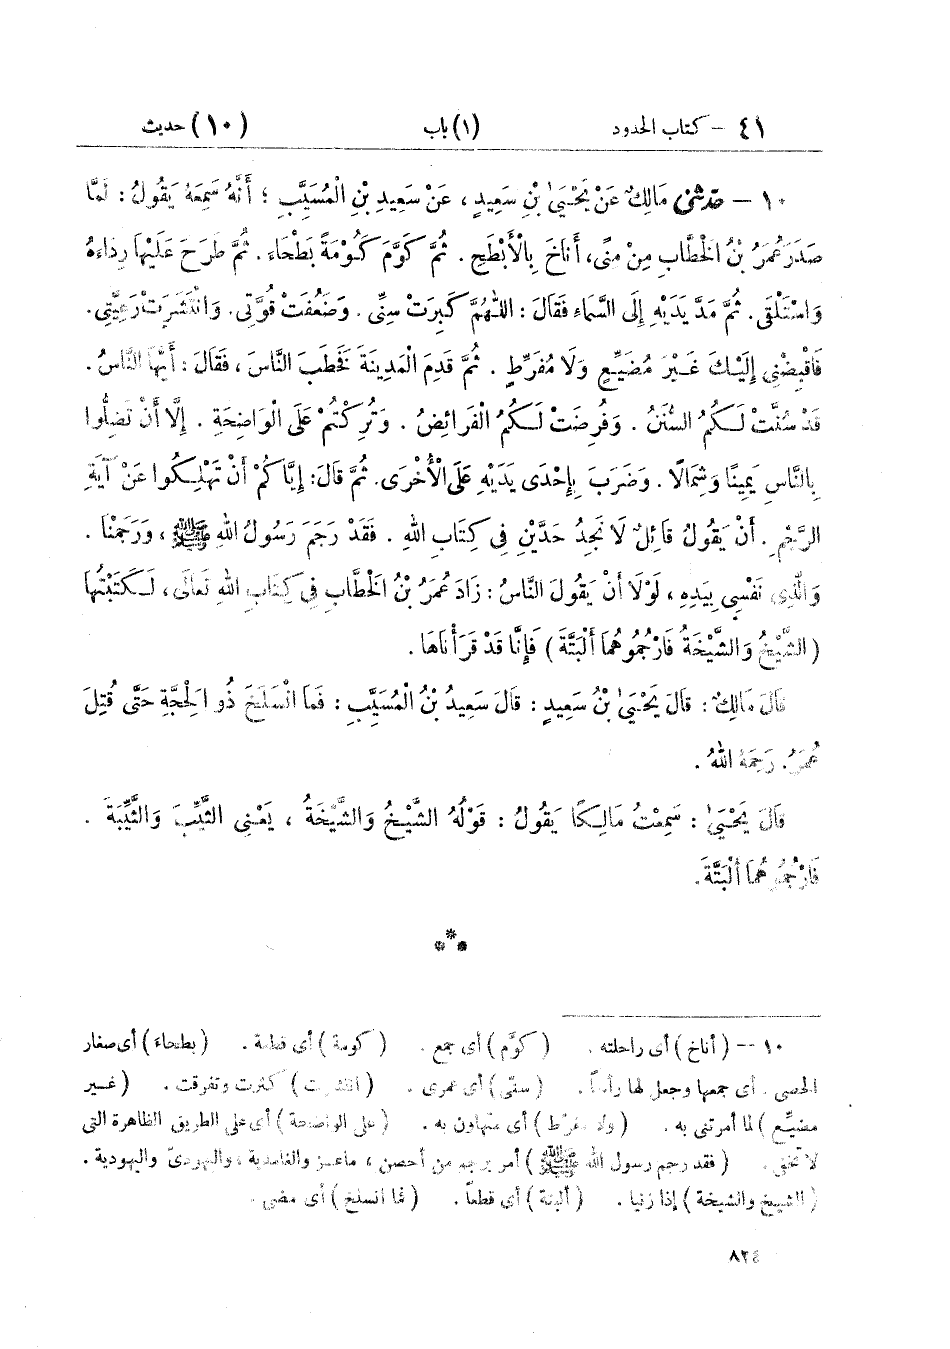 ٤١ – كتاب الحدود (١) باب (١٠) حديث
١٠ – حَدَّثَنِي مَالِكٌ عَنْ يَحْيَىٰ بْنِ سَعِيدٍ ، عَنْ سَعِيدِ بْنِ الْمُسَيَّبِ ؛ أَنَّهُ سَمِعَهُ يَقُولُ : لَمَّا
صَدَرَ عُمَرُ بْنُ الْخَطَّابِ مِنْ مِنًى، أَنَاخَ بِالْأَبْطَحِ . ثُمَّ كَوَّمَ كَوْمَةً بَطْحَاءَ . ثُمَّ طَرَحَ عَلَيْهَا رِدَاءَهُ
وَاسْتَلْقَى . ثُمَّ مَدَّ يَدَيْهِ إِلَى السَّمَاءِ فَقَالَ : اللّٰهُمَّ كَبِرَتْ سِنِّي . وَضَعُفَتْ قُوَّتِي. وَانْتَشَرَتْ رَعِيَّتِي.
فَاقْبِضْنِي إِلَيْكَ غَيْرَ مُضَيِّعٍ وَلَا مُفَرِّطٍ . ثُمَّ قَدِمَ الْمَدِينَةَ فَخَطَبَ النَّاسَ ، فَقَالَ : أَيُّهَا النَّاسُ .
قَدْ سُنَّتْ لَكُمُ السُّنَنُ . وَفُرِضَتْ لَكُمُ الْفَرَائِضُ . وَتُرِكْتُمْ عَلَى الْوَاضِحَةِ . إِلَّا أَنْ تَضِلُّوا
بِالنَّاسِ يَمِينًا وَشِمَالًا . وَضَرَبَ بِإِحْدَى يَدَيْهِ عَلَى الْأُخْرَى. ثُمَّ قَالَ: إِيَّاكُمْ أَنْ تَهْلِكُوا عَنْ آيَةِ
الرَّجْمِ . أَنْ يَقُولَ قَائِلٌ لَا نَجِدُ حَدَّيْنِ فِي كِتَابِ اللهِ . فَقَدْ رَجَمَ رَسُولُ اللهِ ﷺ ، وَرَجَمْنَا .
وَالَّذِي نَفْسِي بِيَدِهِ ، لَوْلَا أَنْ يَقُولَ النَّاسُ : زَادَ عُمَرُ بْنُ الْخَطَّابِ فِي كِتَابِ اللهِ تَعَالَى ، لَكَتَبْتُهَا
( الشَّيْخُ وَالشَّيْخَةُ فَارْجُمُوهُمَا أَلْبَتَّةَ ) فَإِنَّا قَدْ قَرَأْنَاهَا .
قَالَ مَالِكٌ : قَالَ يَحْيَىٰ بْنُ سَعِيدٍ : قَالَ سَعِيدُ بْنُ الْمُسَيَّبِ : فَمَا انْسَلَخَ ذُو الْحِجَّةِ حَتَّى قُتِلَ
عُمَرُ. رَحِمَهُ اللهُ .
قَالَ يَحْيَىٰ : سَمِعْتُ مَالِكًا يَقُولُ : قَوْلُهُ الشَّيْخُ وَالشَّيْخَةُ ، يَعْنِي الثَّيِّبَ وَالثَّيِّبَةَ .
فَارْجُمُوهُمَا أَلْبَتَّةَ.
١٠ – ( أناخ ) أى راحلته . ( كوّم ) أى جمع . ( كومة ) أى قطعة . ( بطحاء ) أى صغار
الحصى . أى جمعها وجعل لها رأساً . ( سنّى ) أى عمرى . ( انتشرت ) كثرت وتفرقت . ( غير
مضيّع ) لما أمرتنى به . ( ولا مفرّط ) أى متهاون به . ( على الواضحة ) أى على الطريق الظاهرة التى
لا تخفى . ( فقد رجم رسول الله ﷺ ) أمر برجم من أحصن ، ماعز والغامدية ، واليهودىّ واليهودية .
( الشيخ والشيخة ) إذا زنيا . ( ألبتة ) أى قطعاً . ( فما انسلخ ) أى مضى .
٨٢٤